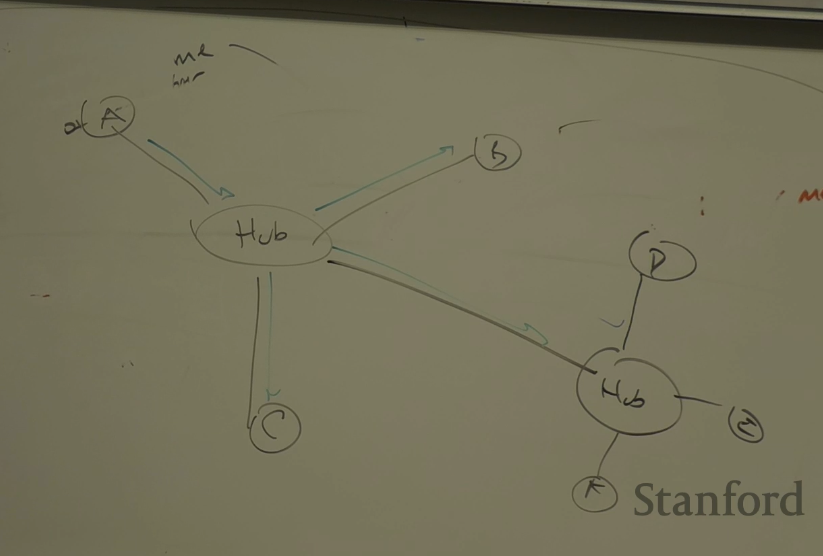 me
A
B
Hub
D
Hub
C
E
F
Stanford